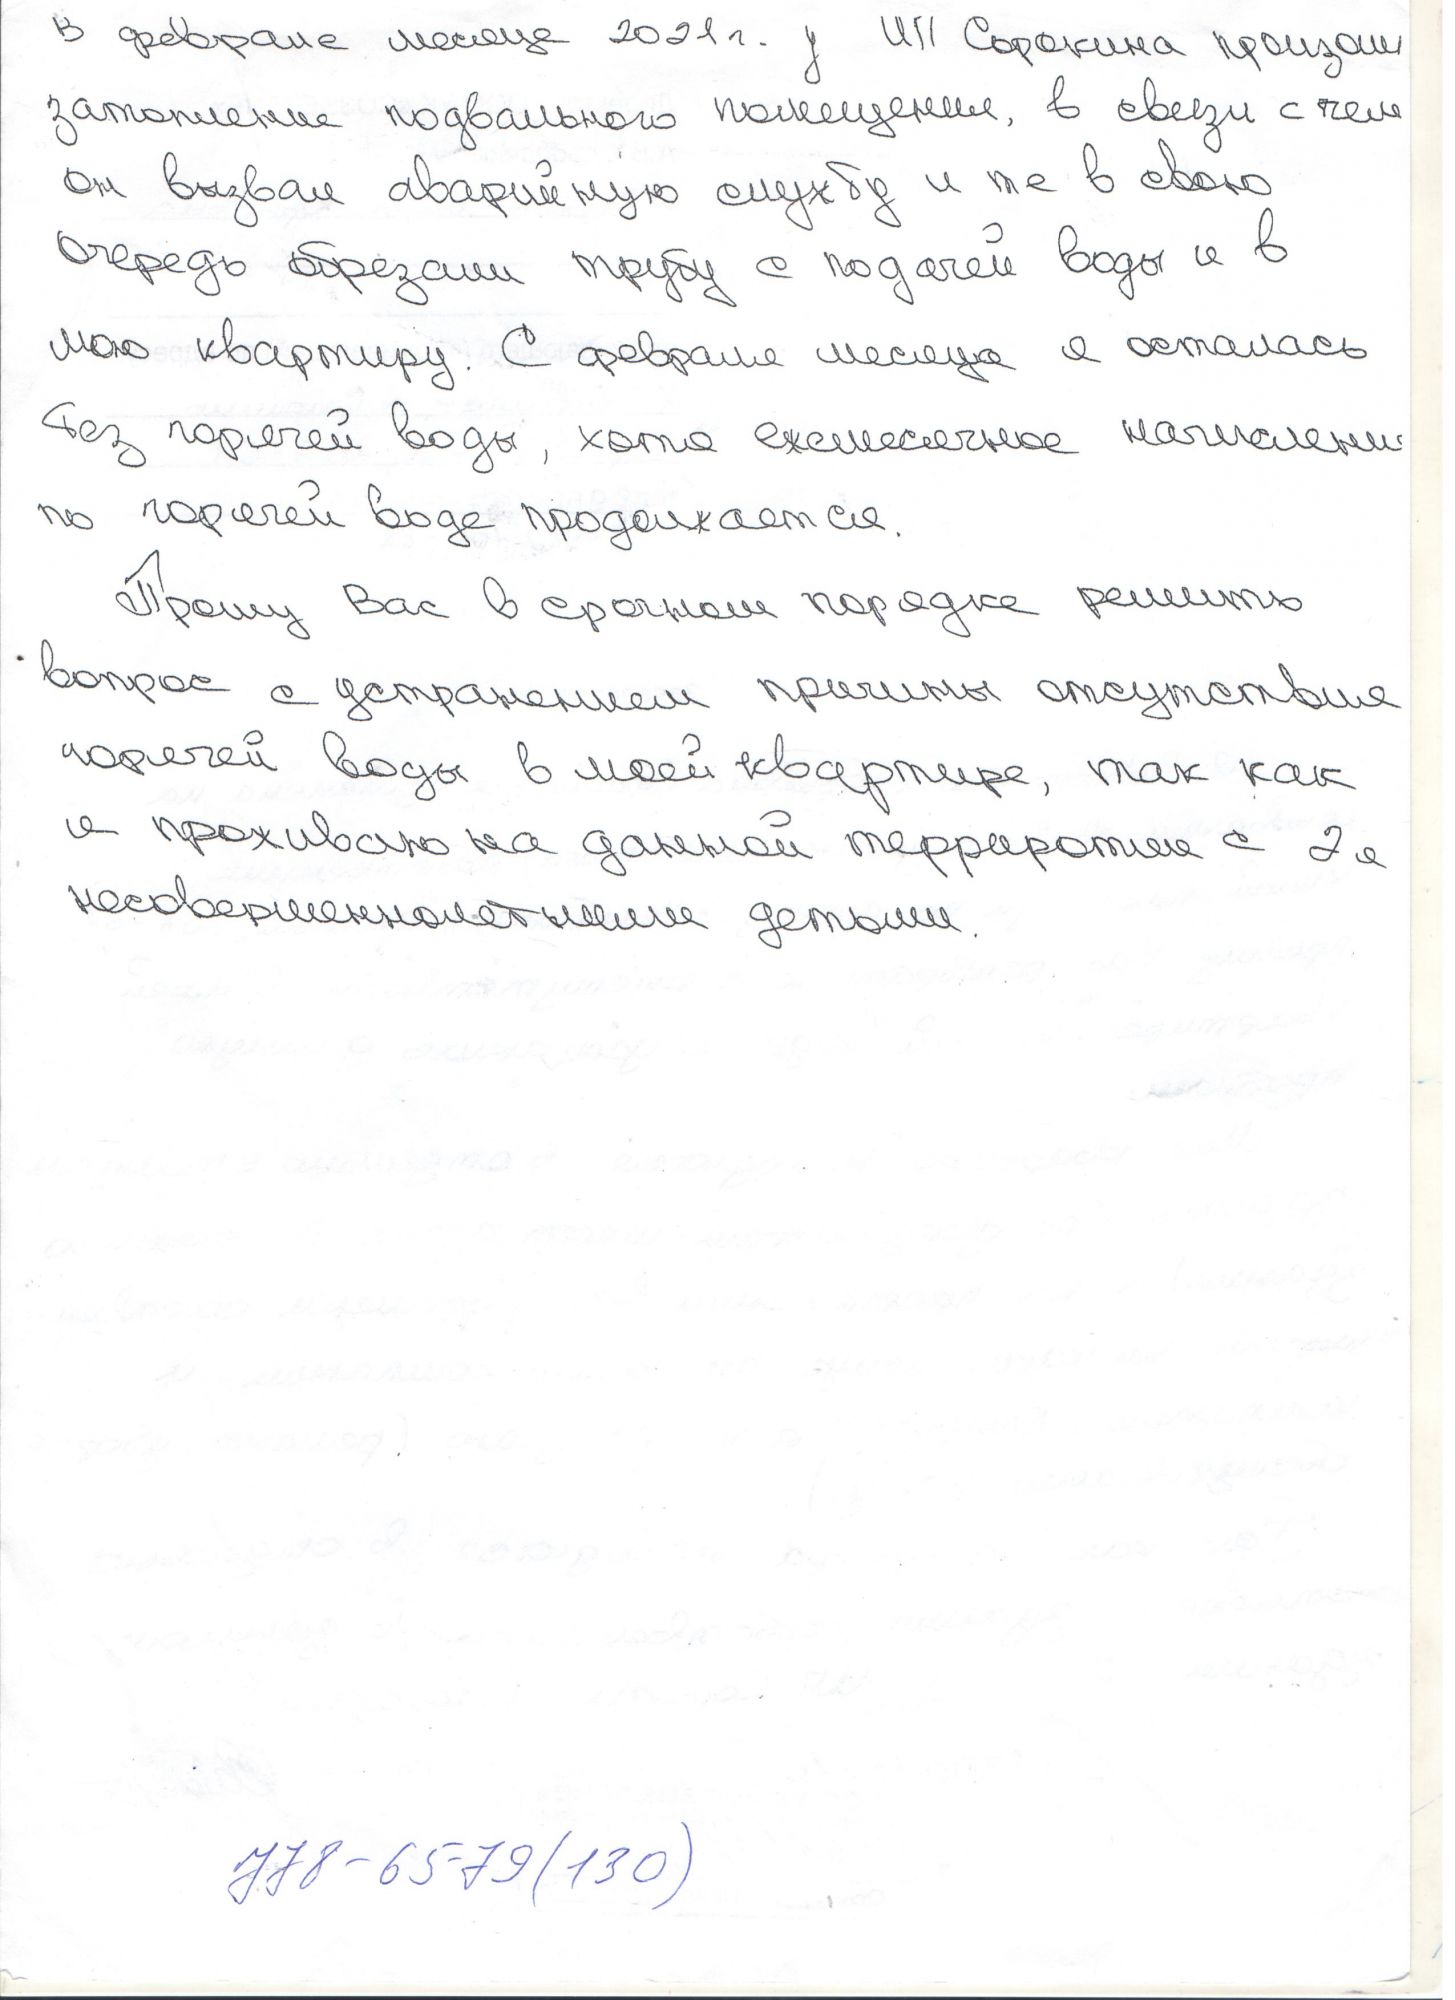 В феврале месяце 2021г. у ИП Сорокина произош
затопление подвального помещения, в связи с чем
он вызвал аварийную службу и те в свою
очередь обрезали трубу с подачей воды и в
мою квартиру. С февраля месяца я осталась
без горячей воды, хотя ежемесячное начислени
по горячей воде продолжается.
Прошу Вас в срочном порядке решить
вопрос с устранением причины отсутствия
горячей воды в моей квартире, так как
я проживаю на данной терраротии с 2я
несовершеннолетними детьми.
778-65-79(130)